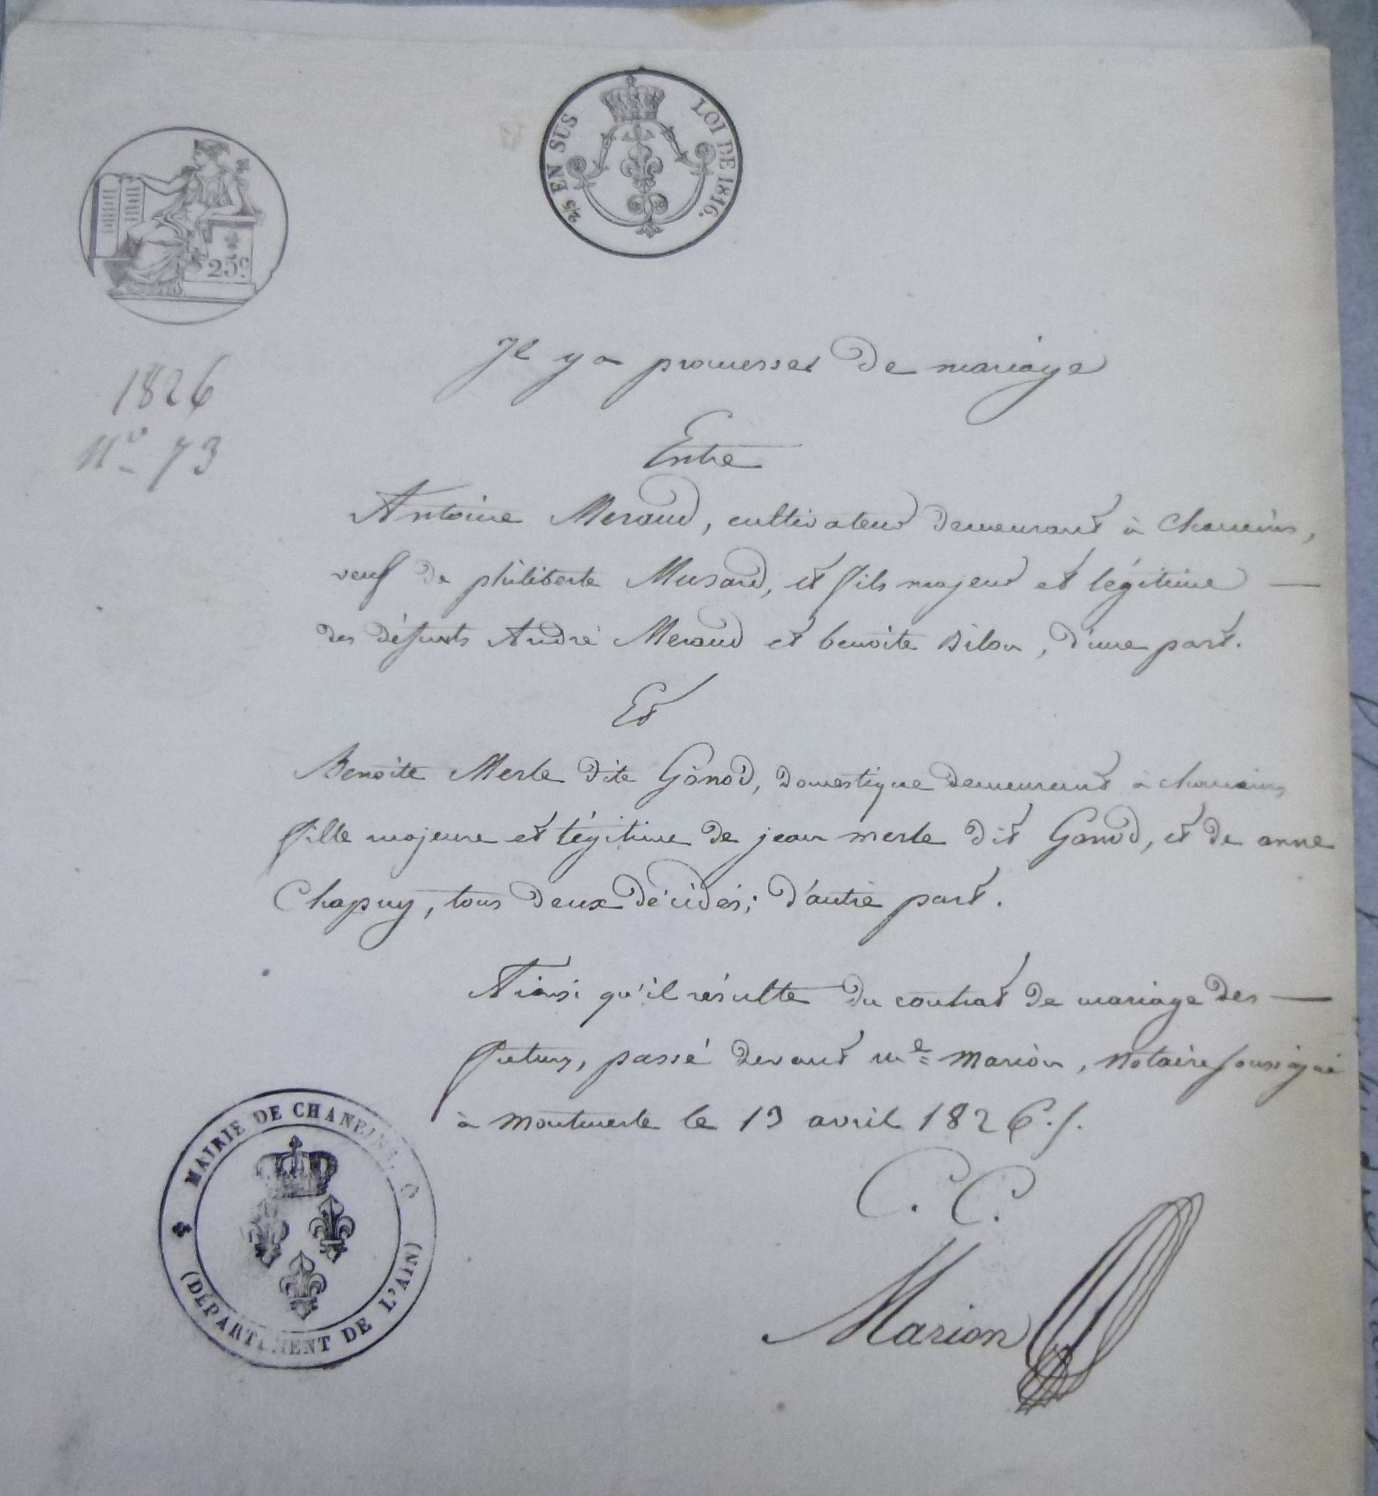 2/5 EN SUS LOI DE 1816.
25c
1826
N° 73
Il y a promesses de mariage
Entre
Antoine Meraud, cultivateur demeurant à Chaneins,
veuf de philiberte Musard, et fils majeur et légitime —
des défunts André Meraud et benoite Dilon, d'une part.
Et
Benoite Merle dite Gonod, domestique demeurant à chaneins
fille majeure et légitime de jean merle dit Gonod, et de anne
Chapuy, tous deux décédés; d'autre part.
Ainsi qu'il résulte du contrat de mariage des —
futurs, passé devant me Marion, Notaire soussigné
à montmerle le 13 avril 1826./.
C. C.
Marion
MAIRIE DE CHANEINS
(DÉPARTEMENT DE L'AIN)